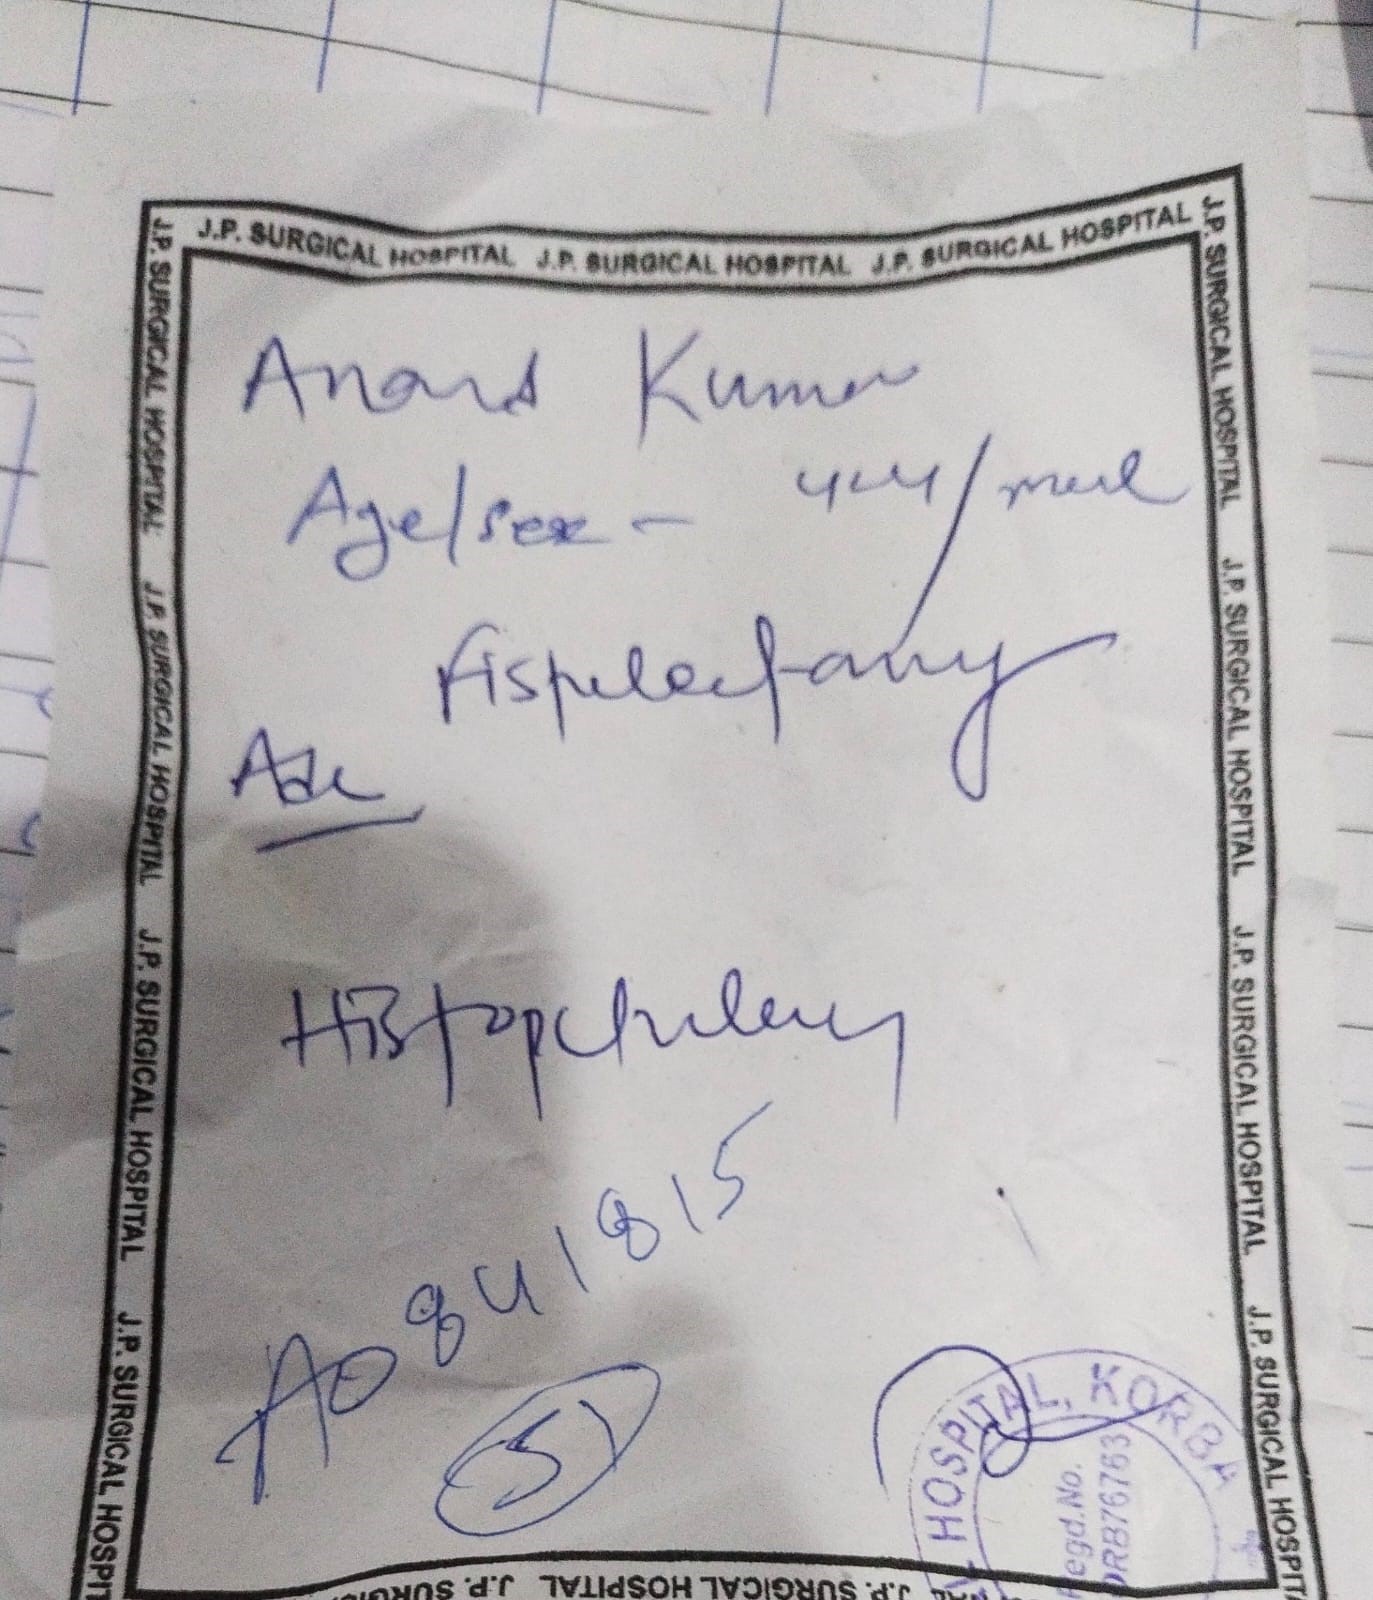 J.P. SURGICAL HOSPITAL J.P. SURGICAL HOSPITAL J.P. SURGICAL HOSPITAL
Anand Kumar
Age/sex - 44y/male
Fistulectomy
Adv
Histopathology
A0841815
51
HOSPITAL, KORBA
Regd.No.
ORB76763
J.P. SURGICAL HOSPITAL J.P. SURGICAL HOSPITAL J.P. SURGICAL HOSPITAL J.P. SURGICAL HOSPITAL
J.P. SURGICAL HOSPITAL J.P. SURGICAL HOSPITAL J.P. SURGICAL HOSPITAL J.P. SURGICAL HOSPITAL
J.P. SURGICAL HOSPITAL J.P.